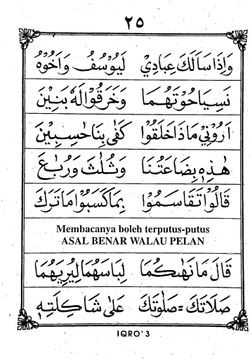 ٢٥
وَإِذَا سَأَلَكَ عِبَادِي لَيُوسُفُ وَأَخُوْهُ
نَسِيَا حُوْتَهُمَا وَخَرَقُوْا لَهٗ بَنِيْنَ
اَرُوْنِي مَاذَا خَلَقُوْا كَفٰى بِنَا حٰسِبِيْنَ
هٰذِهٖ بِضَاعَتُنَا وَثُلٰثَ وَرُبٰعَ
قَالُوْا تَقَاسَمُوْا بِمَا كَسَبُوْا مَا تَرَكَ
Membacanya boleh terputus-putus
ASAL BENAR WALAU PELAN
قَالَ مَا نَهٰىكُمَا لِبَاسَهُمَا لِيُرِيَهُمَا
صَلَاتَكَ = صَلٰوتَكَ عَلٰى شَاكِلَتِهٖ
IQRO' 3